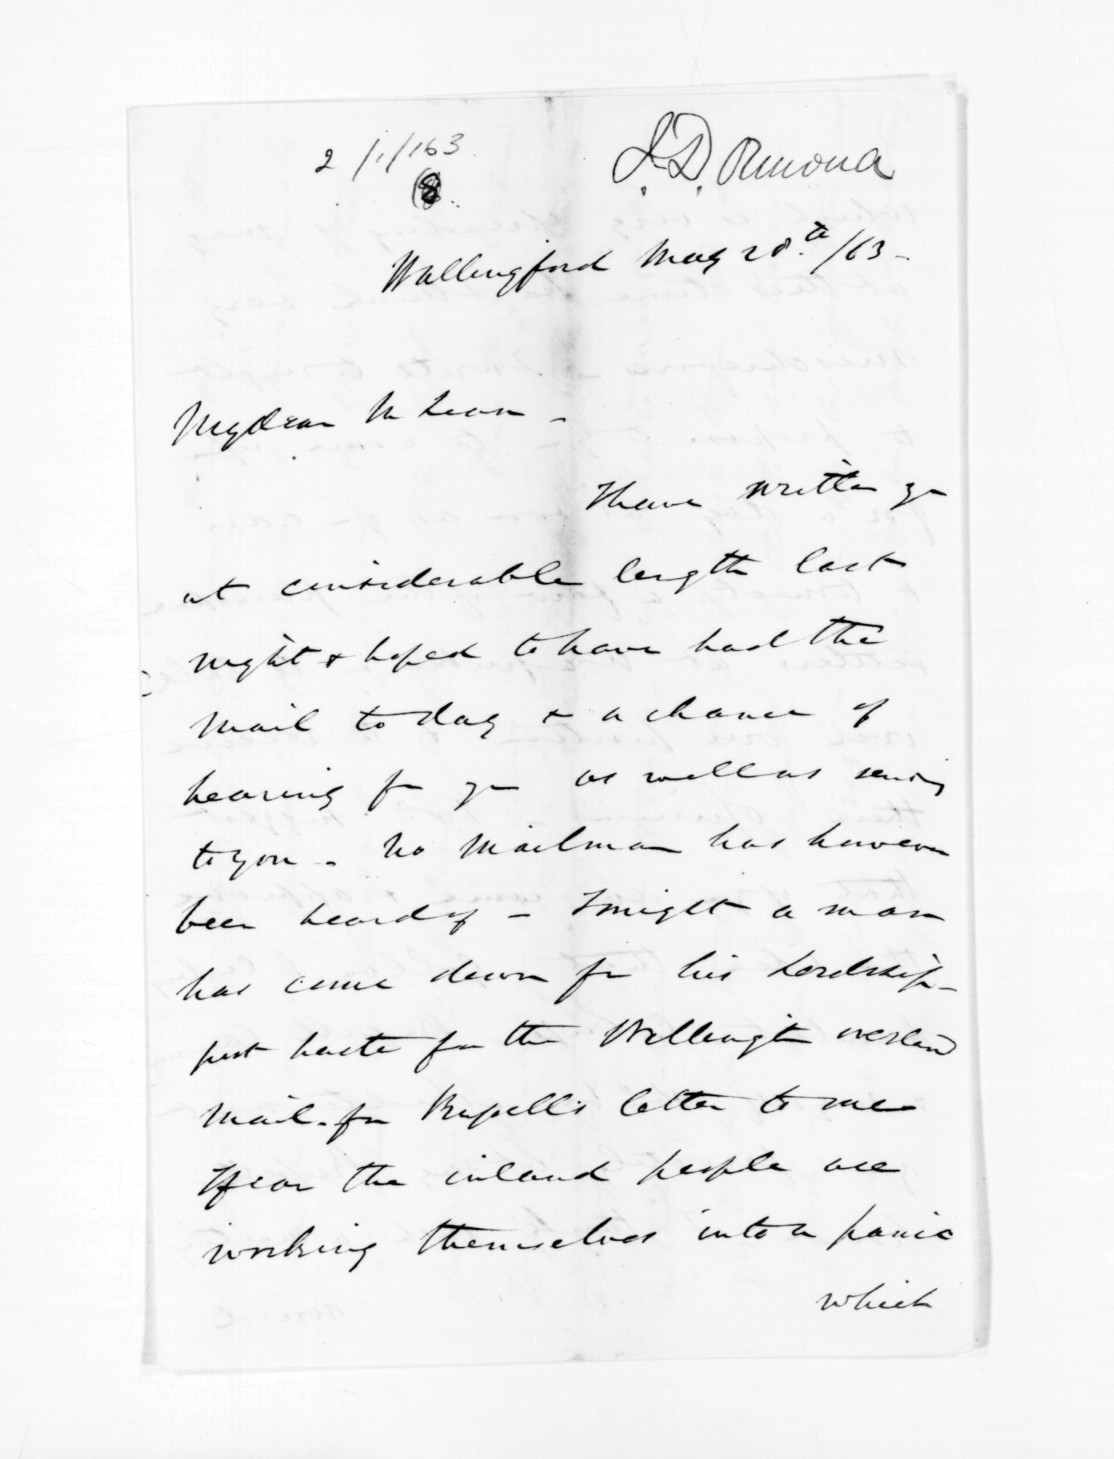 2/1/163
8.
J. D. Ormond
Wallingford May 28.th /63 -
My dear McLean -
I have written you
at considerable length last
night & hoped to have had the
mail to day & a chance of
hearing fm you as well as sending
to you - No mailman has however
been heard of - Tonight a man
has come down for his Lordship -
post haste for the Wellington overland
mail - fm Russell's letter to me
I fear the inland people are
working themselves into a panic
which